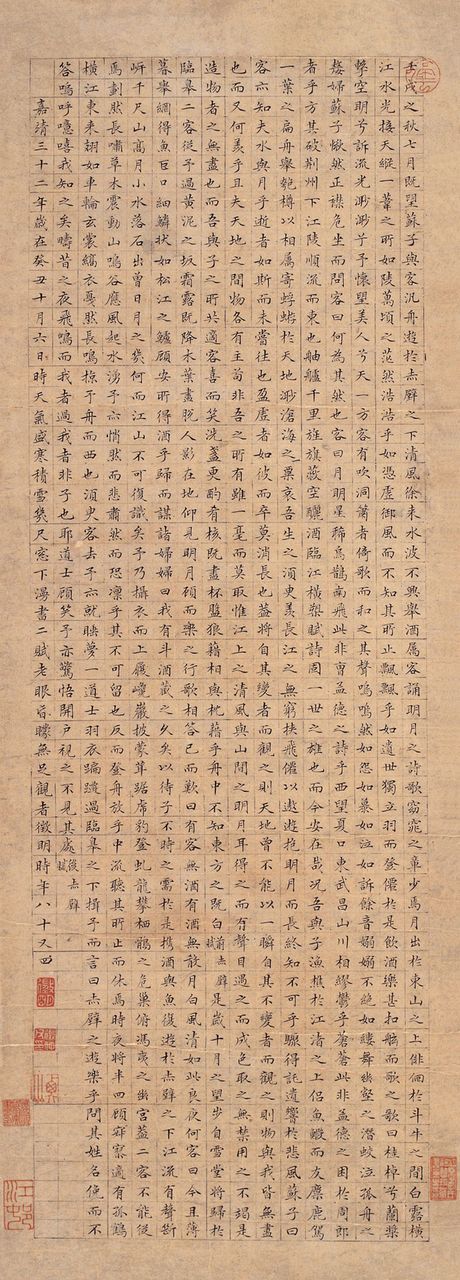 壬戌之秋七月既望蘇子與客汎舟遊於赤壁之下清風徐來水波不興舉酒屬客誦明月之詩歌窈窕之章少焉月出於東山之上徘徊於斗牛之間白露橫
江水光接天縱一葦之所如陵萬頃之茫然浩浩乎如憑虛御風而不知其所止飄飄乎如遺世獨立羽而登僊於是飲酒樂甚扣舷而歌之歌曰桂棹兮蘭槳
擊空明兮泝流光渺渺兮予懷望美人兮天一方客有吹洞簫者倚歌而和之其聲嗚嗚然如怨如慕如泣如訴餘音嫋嫋不絕如縷舞幽壑之潛蛟泣孤舟之
嫠婦蘇子愀然正襟危坐而問客曰何為其然也客曰月明星稀烏鵲南飛此非曹孟德之詩乎西望夏口東武昌山川相繆鬱乎蒼蒼此非孟德之困於周郎
者乎方其破荊州下江陵順流而東也舳艫千里旌旗蔽空釃酒臨江橫槊賦詩固一世之雄也而今安在哉況吾與子漁樵於江渚之上侶魚蝦而友麋鹿駕
一葉之扁舟舉匏樽以相屬寄蜉蝣於天地渺滄海之粟哀吾生之須臾羨長江之無窮挾飛僊以遨遊抱明月而長終知不可乎驟得託遺響於悲風蘇子曰
客亦知夫水與月乎逝者如斯而未嘗往也盈虛者如彼而卒莫消長也蓋將自其變者而觀之則天地曾不能以一瞬自其不變者而觀之則物與我皆無盡
也而又何羨乎且夫天地之間物各有主苟非吾之所有雖一毫而莫取惟江上之清風與山間之明月耳得之而有聲目遇之而成色取之無禁用之不竭是
造物者之無盡也而吾與子之所共適客喜而笑洗盞更酌肴核既盡杯盤狼藉相與枕藉乎舟中不知東方之既白前赤壁賦是歲十月之望步自雪堂將歸於
臨皋二客從予過黃泥之坂霜露既降木葉盡脫人影在地仰見明月顧而樂之行歌相答已而歎曰有客無酒有酒無肴月白風清如此良夜何客曰今且薄
暮舉網得魚巨口細鱗狀如松江之鱸顧安所得酒乎歸而謀諸婦婦曰我有斗酒藏之久矣以待子不時之需於是攜酒與魚復遊於赤壁之下江流有聲斷
岍千尺山高月小水落石出曾日月之幾何而江山不可復識矣予乃攝衣而上履巉巖披蒙茸踞虎豹登虬龍攀栖鶻之危巢俯馮夷之幽宮蓋二客不能從
焉劃然長嘯草木震動山鳴谷應風起水湧予亦悄然而悲肅然而恐凜乎其不可留也反而登舟放乎中流聽其所止而休焉時夜將半四顧寂寥適有孤鶴
橫江東來翅如車輪玄裳縞衣戛然長鳴掠予舟而西也須臾客去予亦就睡夢一道士羽衣蹁躚過臨皋之下揖予而言曰赤壁之遊樂乎問其姓名俛而不
答嗚呼噫嘻我知之矣疇昔之夜飛鳴而我者過我者非子也耶道士顧笑予亦驚悟開戶視之不見其處後赤壁賦
嘉靖三十二年歲在癸丑十月六日時天氣盛寒積雪幾尺窓下漫書二賦老眼眵矇無足觀者徵明時年八十又四